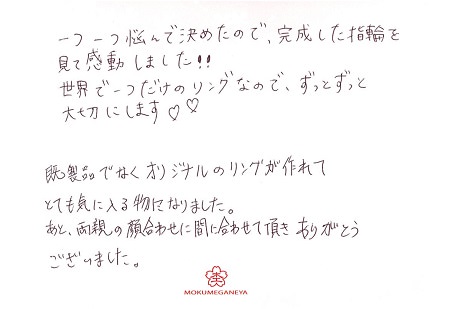 一つ一つ悩んで決めたので、完成した指輪を
見て感動しました!!
世界で一つだけのリングなので、ずっとずっと
大切にします♡♡
既製品でなくオリジナルのリングが作れて
とても気に入る物になりました。
あと、両親の顔合わせに間に合わせて頂きありがとう
ございました。
MOKUMEGANEYA